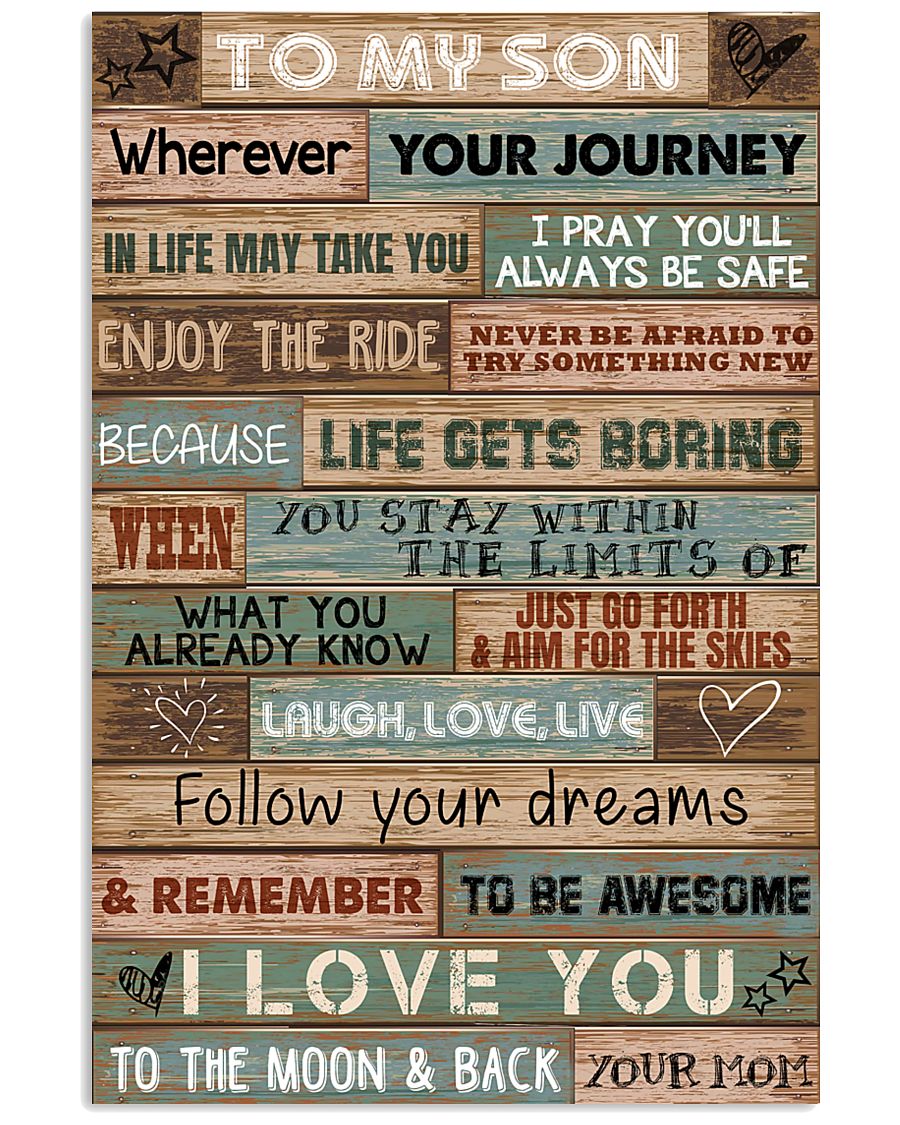 TO MY SON
Wherever YOUR JOURNEY
IN LIFE MAY TAKE YOU
I PRAY YOU'LL
ALWAYS BE SAFE
ENJOY THE RIDE
NEVER BE AFRAID TO
TRY SOMETHING NEW
BECAUSE LIFE GETS BORING
WHEN
YOU STAY WITHIN
THE LIMITS OF
WHAT YOU
ALREADY KNOW
JUST GO FORTH
& AIM FOR THE SKIES
LAUGH, LOVE, LIVE
Follow your dreams
& REMEMBER TO BE AWESOME
I LOVE YOU
TO THE MOON & BACK YOUR MOM